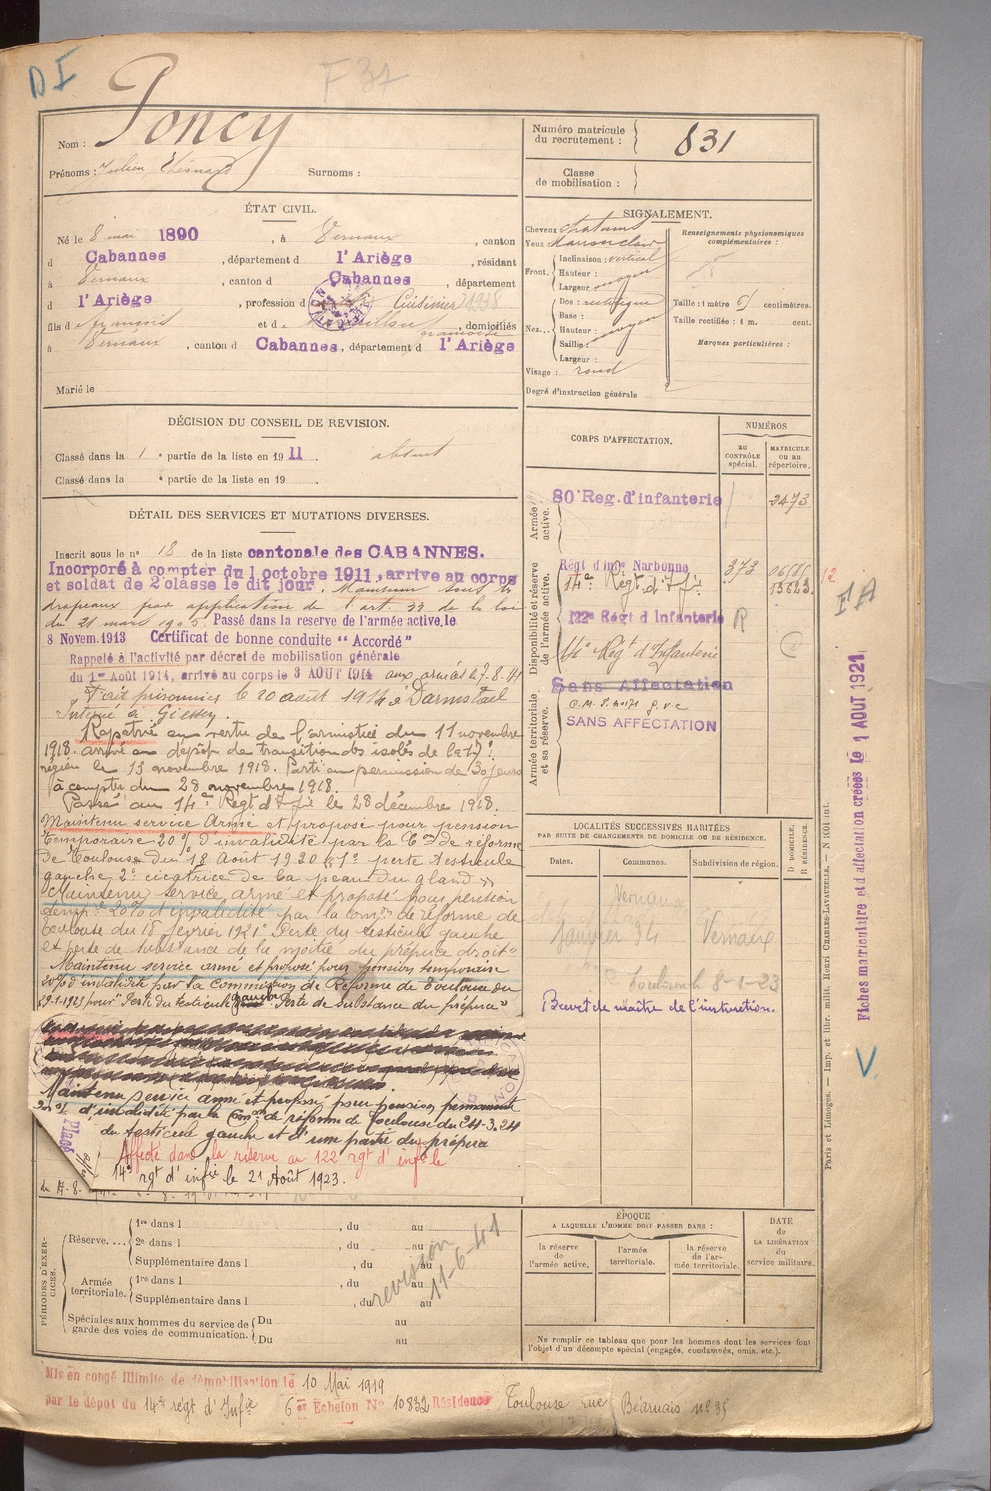 D I
F 37
Nom : Poncy
Prénoms : Julien,
Surnoms :
Numéro matricule du recrutement : 831
Classe de mobilisation :
ÉTAT CIVIL.
Né le 8 mai 1890, à Vernaux, canton
d Cabannes, département d l'Ariège, résidant
à Vernaux, canton d Cabannes, département
d l'Ariège, profession d Cuisinier 1938
fils de françois et de, domiciliés
à Vernaux, canton d Cabannes, département d l'Ariège
Marié le
SIGNALEMENT.
Cheveux chatains
Yeux marron clair
Front. Inclinaison : vertical
Hauteur : moyen
Largeur :
Nez... Dos : rectiligne
Base :
Hauteur : moyen
Saillie :
Largeur :
Visage : rond
Renseignements physionomiques complémentaires :
Taille : 1 mètre 61 centimètres.
Taille rectifiée : 1 m. cent.
Marques particulières :
Degré d'instruction générale
DÉCISION DU CONSEIL DE REVISION.
Classé dans la 1 e partie de la liste en 1911. absent
Classé dans la e partie de la liste en 19 .
DÉTAIL DES SERVICES ET MUTATIONS DIVERSES.
Inscrit sous le n° 18 de la liste cantonale des CABANNES.
Incorporé à compter du 1 octobre 1911, arrive au corps
et soldat de 2e classe le dit jour. Maintenu sous les
drapeaux par application de l'art 33 de la loi
du 21 mars 1905. Passé dans la reserve de l'armée active, le
8 Novem. 1913 Certificat de bonne conduite "Accordé"
Rappelé à l'activité par décret de mobilisation générale
du 1er Août 1914, arrivé au corps le 3 AOUT 1914 aux armées le 7.8.14
Fait prisonnier le 20 août 1914 à Darmstad
Interné à Giessen.
Rapatrié en vertu de l'armistice du 11 novembre
1918. arrivé au dépôt de transition des isolés de la 17e
région le 13 novembre 1918. Parti en permission de 30 jours
à compter du 28 novembre 1918.
Passé au 14e Regt d'Ifie le 28 décembre 1918.
Maintenu service Armé et proposé pour pension
temporaire 20% d'invalidité par la Con de réforme
de Toulouse du 18 Août 1920 1° perte testicule
gauche 2° cicatrice de la peau du gland
Maintenu service armé et proposé pour pension
temp. 20% d'invalidité par la com. de réforme de
Toulouse du 18 février 1921 "Perte du testicule gauche
et perte de substance de la moitié du prépuce droit"
Maintenu service armé et proposé pour pension temporaire
20% d'invalidité par la Commission de Réforme de Toulouse du
29-1-1923 pour "Perte du testicule gauche Perte de substance du prépuce"
Maintenu service armé et proposé pour pension permanente
20% d'invalidité par la Con de réforme de Toulouse du 24-3-24
du testicule gauche et d'une partie du prépuce
Affecté dans la réserve au 122 rgt d'infie le
14e rgt d'infie le 21 Août 1923.
Placé
CORPS D'AFFECTATION.
NUMÉROS
au CONTRÔLE spécial.
MATRICULE ou au répertoire.
Armée active.
80e Reg. d'infanterie 2473
Disponibilité et réserve de l'armée active.
Régt d'infie Narbonne 373
14e Régt d'Ifie 15623
122e Régt d Infanterie R
14e Régt d'Infanterie
Armée territoriale et sa réserve.
Sans Affectation
SANS AFFECTATION
LOCALITÉS SUCCESSIVES HABITÉES
PAR SUITE DE CHANGEMENTS DE DOMICILE OU DE RÉSIDENCE.
Dates. Communes. Subdivision de région. D DOMICILE, R RÉSIDENCE.
Vernaux
Janvier 34 Vernaux
Toulouse le 8-1-23
Brevet de maître de l'instruction.
12
F A
Fiches matriculaire et d affectation créées le 1 AOUT 1921
V
Paris et Limoges. — Imp. et libr. milit. Henri CHARLES-LAVAUZELLE.
PÉRIODES D'EXERCICES.
Réserve.... 1re dans l , du au
2e dans l , du au
Supplémentaire dans l , du au
Armée territoriale. 1re dans l , du au
Supplémentaire dans l , du au
Spéciales aux hommes du service de garde des voies de communication. Du au
Du au
revision 11-6-41
ÉPOQUE
A LAQUELLE L'HOMME DOIT PASSER DANS :
la réserve de l'armée active.
l'armée territoriale.
la réserve de l'armée territoriale.
DATE de LA LIBÉRATION du service militaire.
Ne remplir ce tableau que pour les hommes dont les services font
l'objet d'un décompte spécial (engagés, condamnés, omis, etc.).
Mis en congé illimité de démobilisation le 10 Mai 1919
par le dépot du 14e régt d'Infie 6e Echelon N° 10832 Résidence Toulouse rue Béarnais n° 35